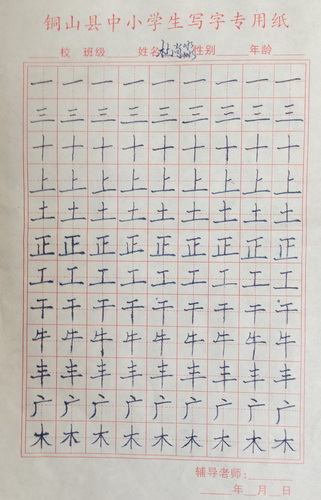 铜山县中小学生写字专用纸
校 班级 姓名 性别 年龄
一 一 一 一 一 一 一 一 一
三 三 三 三 三 三 三 三 三
十 十 十 十 十 十 十 十 十
上 上 上 上 上 上 上 上 上
土 土 土 土 土 土 土 土 土
正 正 正 正 正 正 正 正 正
工 工 工 工 工 工 工 工 工
干 干 干 干 干 干 干 干 干
牛 牛 牛 牛 牛 牛 牛 牛 牛
丰 丰 丰 丰 丰 丰 丰 丰 丰
广 广 广 广 广 广 广 广 广
木 木 木 木 木 木 木 木 木
辅导老师:
年 月 日